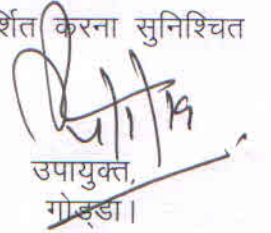 र्शित करना सुनिश्चित
4/1/19
उपायुक्त,
गोड्डा।